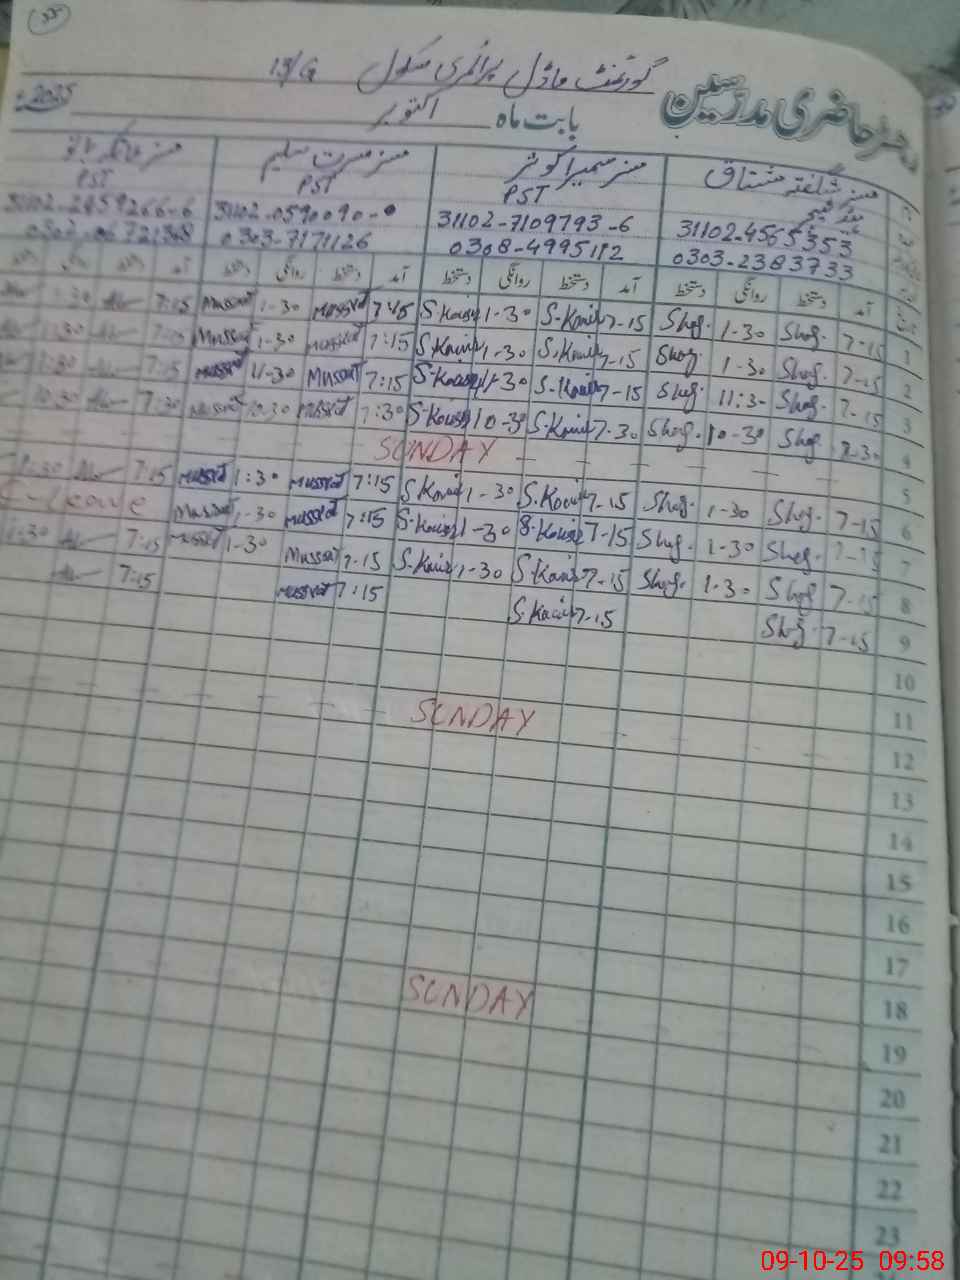 55
رجسٹر حاضری مدرسین گورنمنٹ ماڈل پرائمری سکول 13/G
بابت ماہ اکتوبر 2025ء
مسز شگفتہ مشتاق مسز سمیرا کوثر مسز مسرت سلیم مسز
ہیڈ ٹیچر PST PST PST
31102-4565353 31102-7109793-6 31102-0590090-0 31102-2459266-6
0303-2383733 0308-4995112 0303-7171126
آمد دستخط روانگی دستخط آمد دستخط روانگی دستخط آمد دستخط روانگی دستخط آمد
1 7-15 Shag. 1-30 Shag. 7-15 S.Kausar 1-30 S.Kausar 7:15 Mussrat 1-30 Mussrat 7:15
2 7-15 Shag. 1-30 Shag. 7-15 S.Kausar 1-30 S.Kausar 7:15 Mussrat 1-30 Mussrat 7:15
3 7-15 Shag. 11:3- Shag. 7-15 S.Kausar 11-30 S.Kausar 7:15 Mussrat 11-30 Mussrat 7:15
4 7-30 Shag. 10-30 Shag. 7-30 S.Kausar 10-30 S.Kausar 7:30 Mussrat 10.30 Mussrat 7:30 10.30
5 SUNDAY
6 7-15 Shag. 1-30 Shag. 7-15 S.Kausar 1-30 S.Kausar 7:15 Mussrat 1:30 Mussrat 7:15 1:30
7 7-15 Shag. 1-30 Shag. 7-15 S.Kausar 1-30 S.Kausar 7:15 Mussrat 1-30 Mussrat C-Leave
8 7-15 Shag 1-30 Shag. 7-15 S.Kausar 1-30 S.Kausar 7-15 Mussrat 1-30 Mussrat 7:15 1-30
9 7-15 Shag. 7-15 S.Kausar 7:15 Mussrat 7:15
10
11
12 SUNDAY
13
14
15
16
17
18
19 SUNDAY
20
21
22
23
09-10-25 09:58